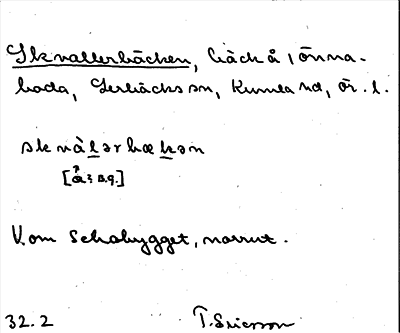 Skvallerbäcken, bäck å Önna-
boda, Lerbäcks sn, Kumla hd, ör. l.
skvàlərbækən
Kom Schabygget, norrut.
32.2 T. Ericsson